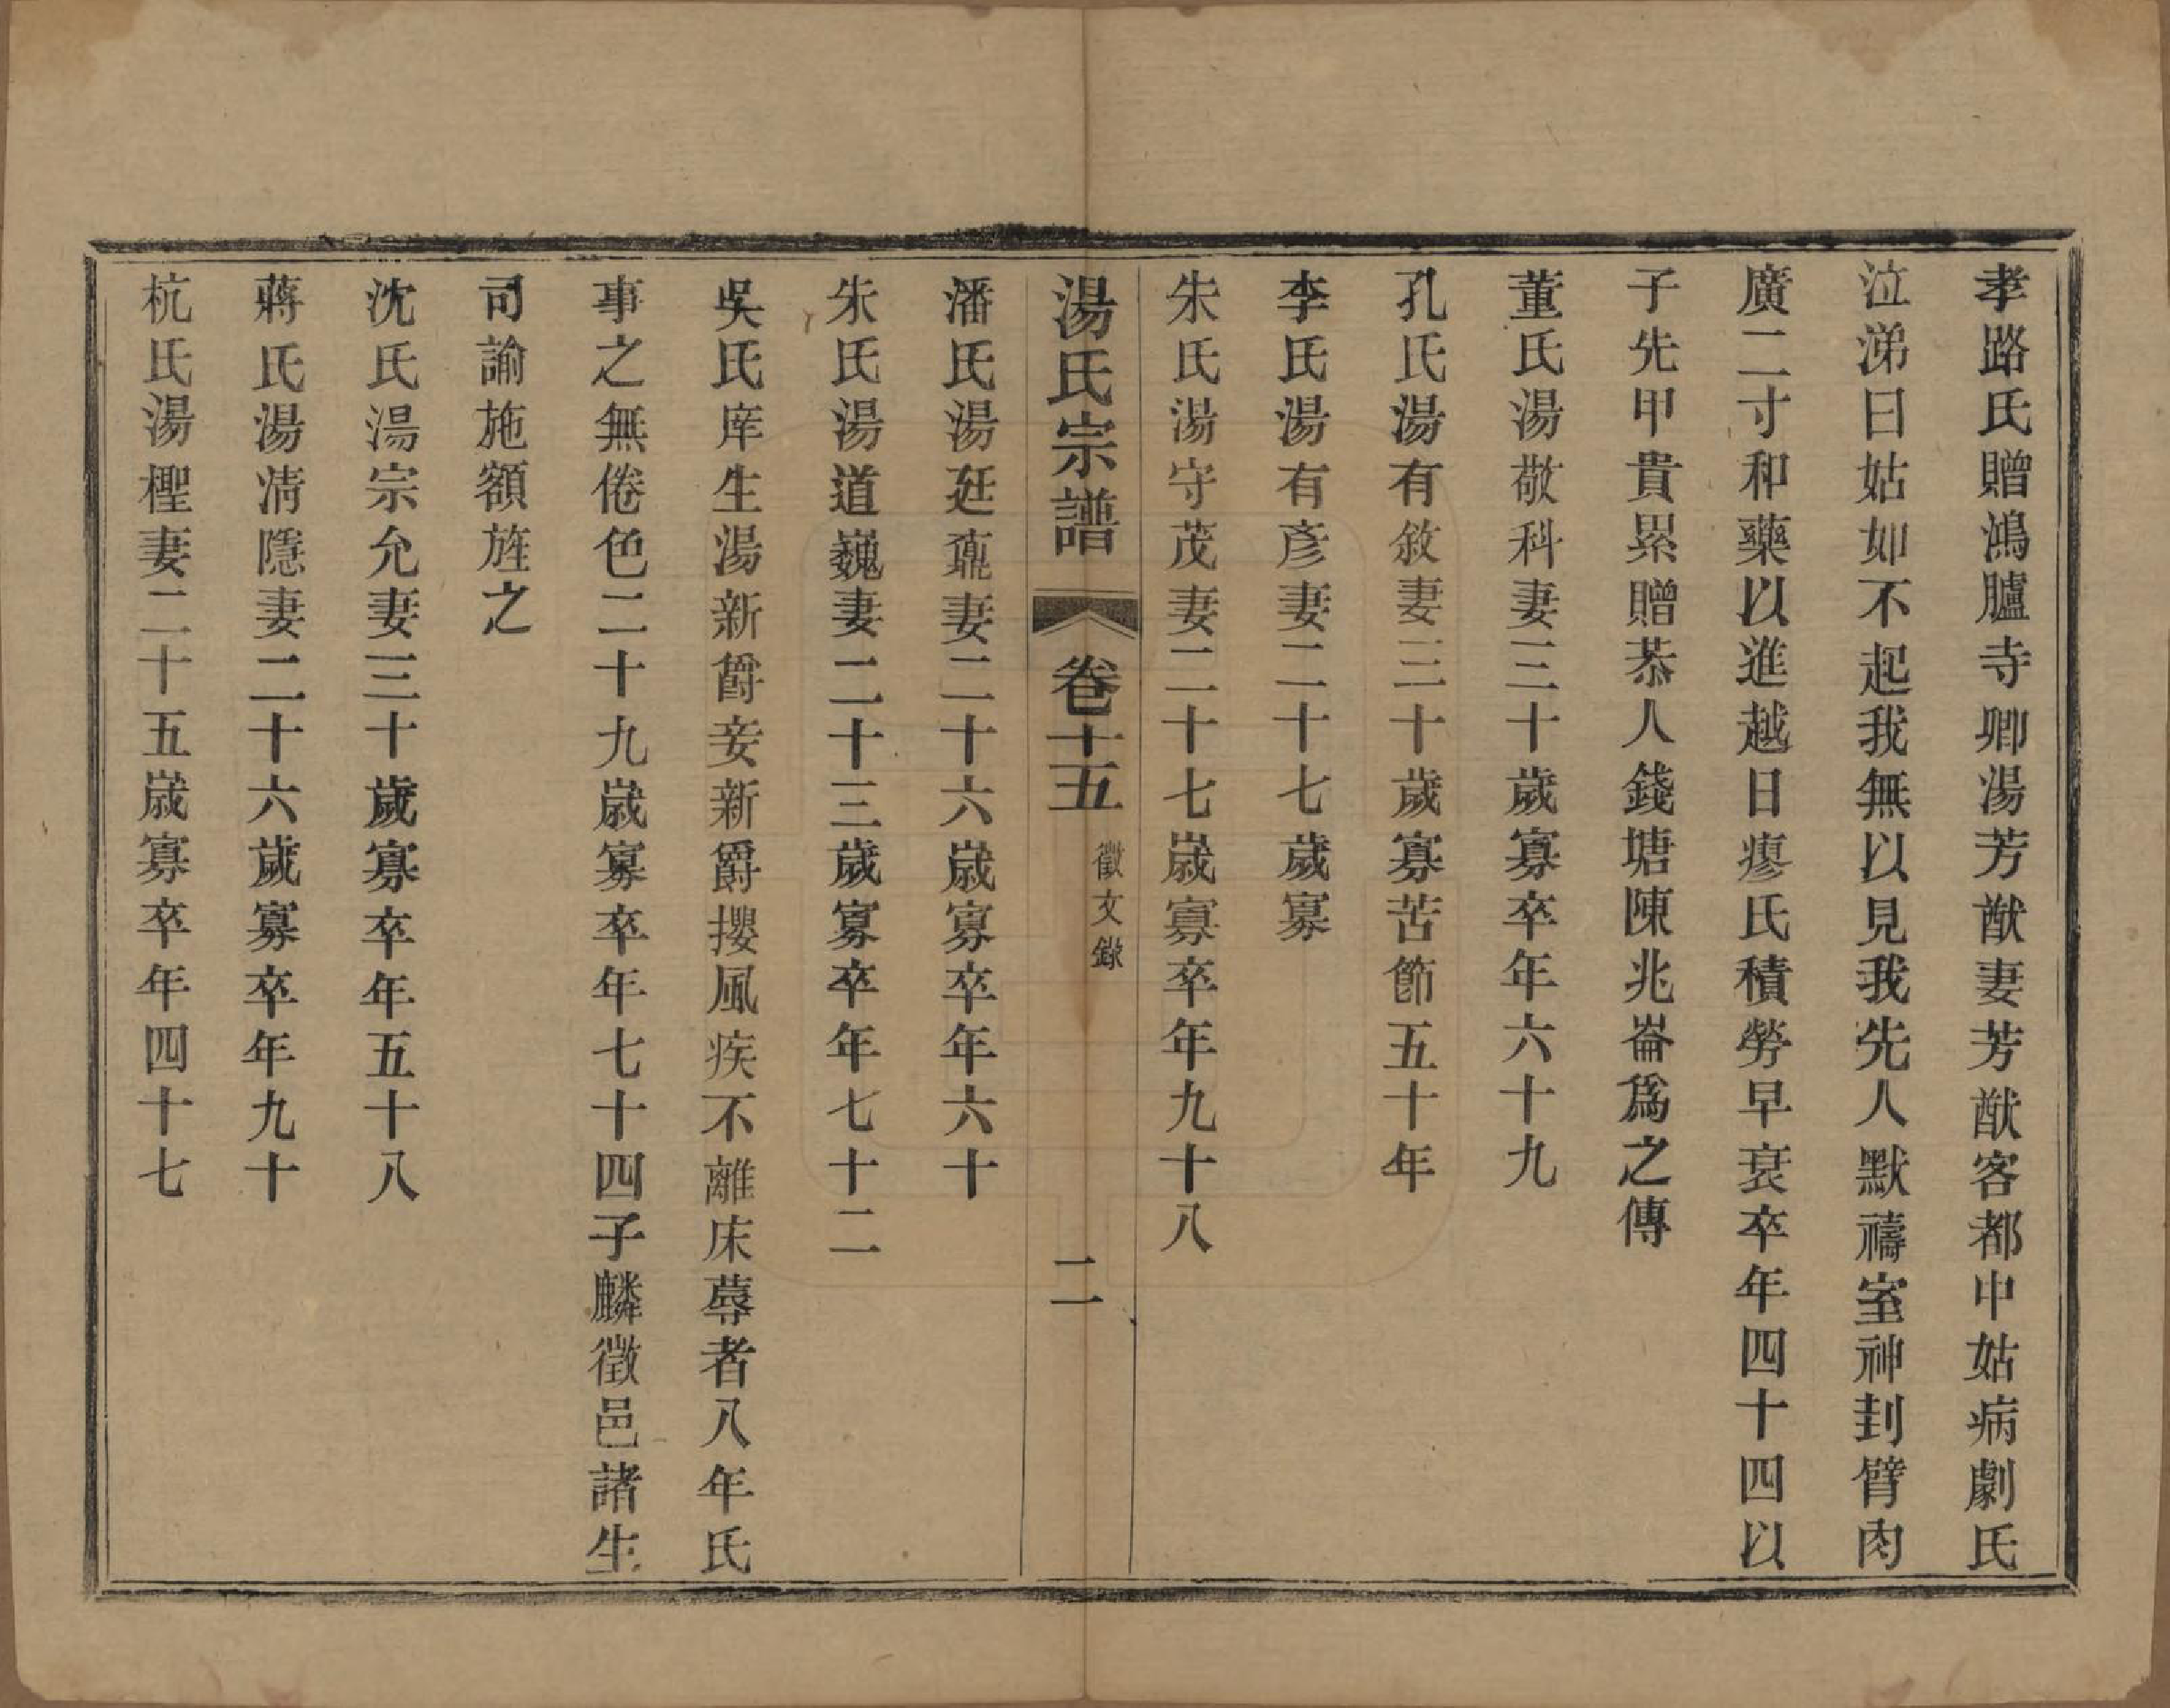 孝路氏贈鴻臚寺卿湯芳猷妻芳猷客都中姑病劇氏
泣涕曰姑如不起我無以見我先人默禱室神刲臂肉
廣二寸和藥以進越日瘳氏積勞早衰卒年四十四以
子先甲貴累贈恭人錢塘陳兆崙爲之傳
董氏湯敬科妻三十歲寡卒年六十九
孔氏湯有敘妻三十歲寡苦節五十年
李氏湯有彥妻二十七歲寡
朱氏湯守茂妻二十七歲寡卒年九十八
湯氏宗譜 卷十五 徵文錄 二
潘氏湯廷鼐妻二十六歲寡卒年六十
朱氏湯道巍妻二十三歲寡卒年七十二
吳氏庠生湯新爵妾新爵攖風疾不離床蓐者八年氏
事之無倦色二十九歲寡卒年七十四子麟徵邑諸生
司諭施額旌之
沈氏湯宗允妻三十歲寡卒年五十八
蔣氏湯清隱妻二十六歲寡卒年九十
杭氏湯檉妻二十五歲寡卒年四十七